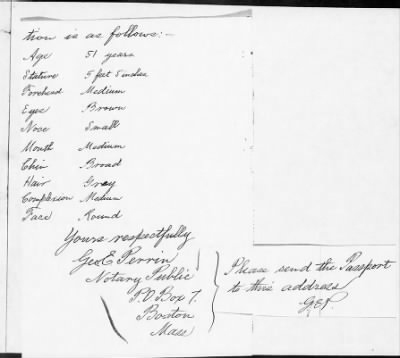 tion is as follows:-
Age 51 years
Stature 5 feet 5 inches
Forehead Medium
Eyes Brown
Nose Small
Mouth Medium
Chin Broad
Hair Grey
Complexion Medium
Face Round
Yours respectfully
Geo E Perrin
Notary Public
P.O Box 7.
Boston
Mass
Please send the Passport
to this address
G.E.P.